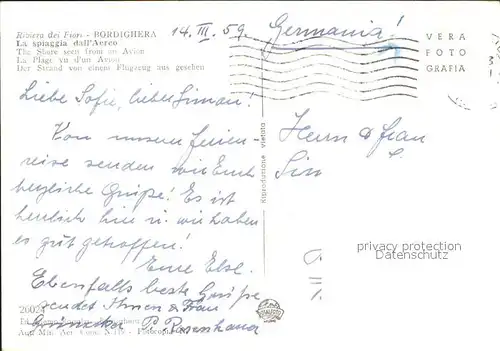 Riviera dei Fiori - BORDIGHERA
La spiaggia dall'Aereo
The Shore seen from an Avion
La Plage vu d'un Avion
Der Strand von einem Flugzeug aus gesehen
14. III. 59.
Germania!
VERA
FOTO
GRAFIA
Liebe Sofie, lieber Simon!
Von unserer Ferien-
reise senden wir Euch
herzliche Grüße! Es ist
herrlich hier u. wir haben
es gut getroffen!
Eure Else.
Ebenfalls beste Grüße
sendet Ihnen & Frau
P.
Riproduzione vietata
Herrn & Frau
Sim
privacy protection
Datenschutz
26024